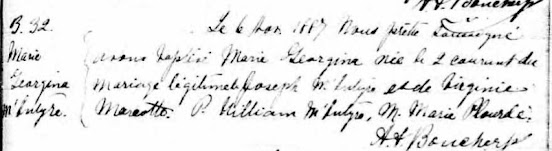 B. 32.
Marie
Georgina
McIntyre.
Le 6 Nov. 1887 Nous prêtre soussigné
avons baptisé Marie Georgina née le 2 courant du
mariage légitime de Joseph McIntyre et de Virginie
Marcotte. P. William McIntyre, M. Marie Plourde.
A. A. Boucher ptr